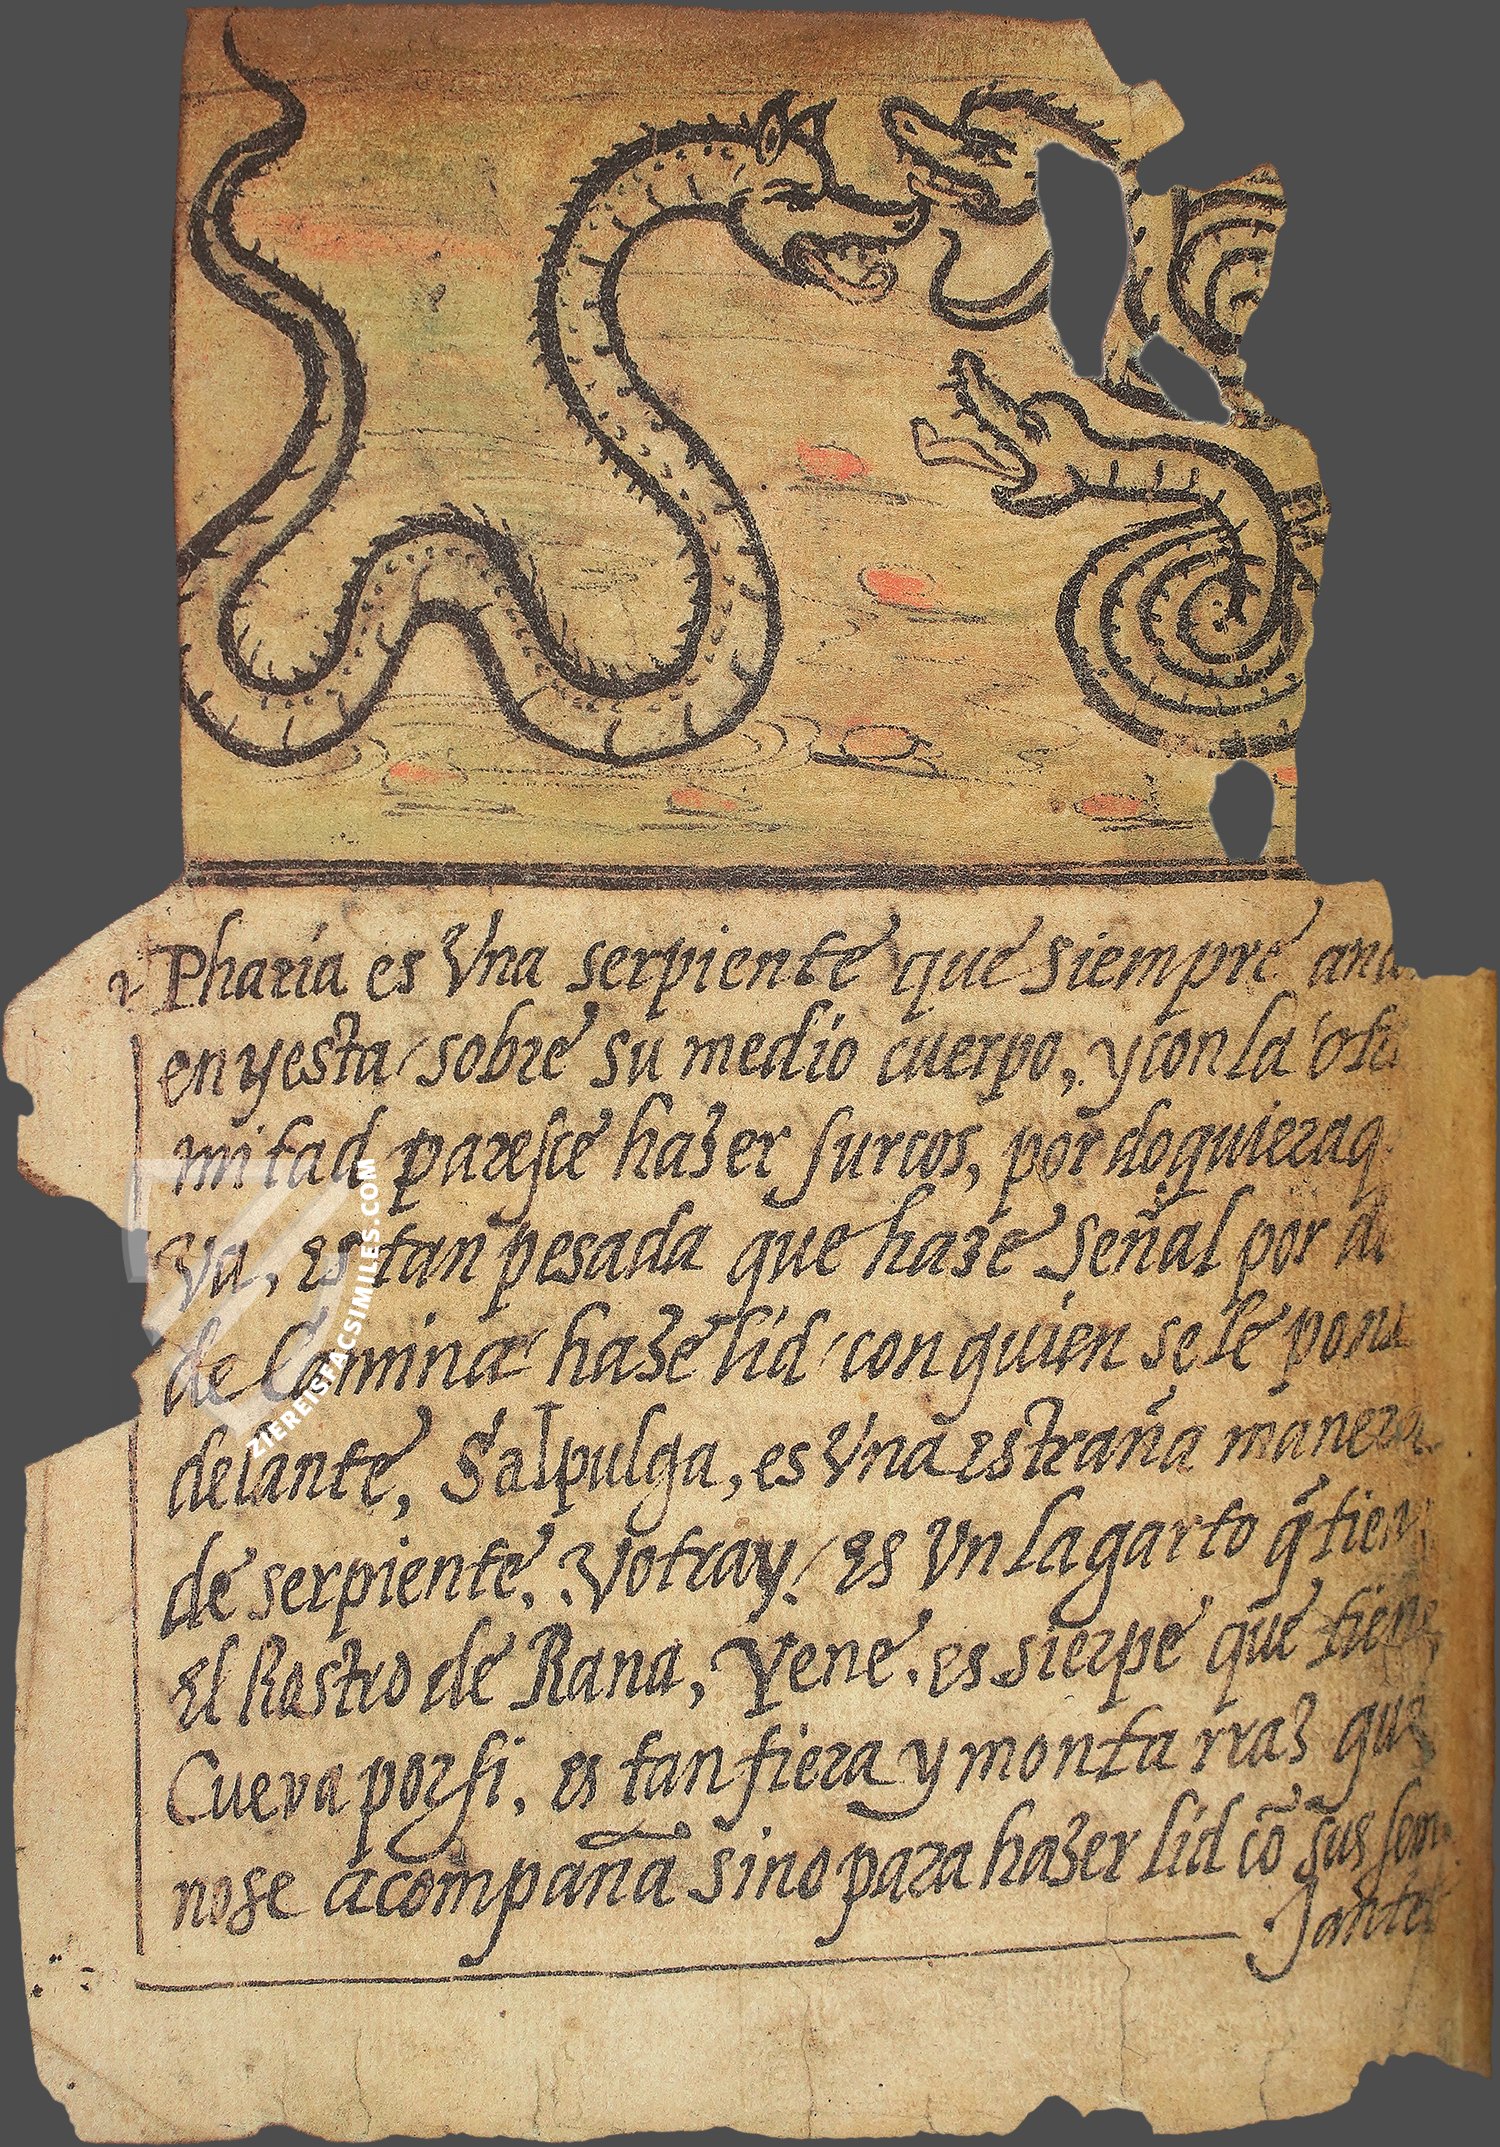 Pharia es Vna serpiente que siempre
enyesta/ sobre su medio cuerpo, y con la
mitad paresce hazer surcos, por doquiera q
va, Es tan pesada que haze señal por
de Camina/ haze lid/ con quien se le pone
delante, Salpulga, es Vna estraña manera
de serpiente, Votray/ Es Vn lagarto q̃ tiene
El Rostro de Rana, Yene. es sierpe que tiene
Cueva por si, es tan fiera y monta rraz que
nose acompaña sino para hazer lid cõ sus
ZIEREISFACSIMILES.COM